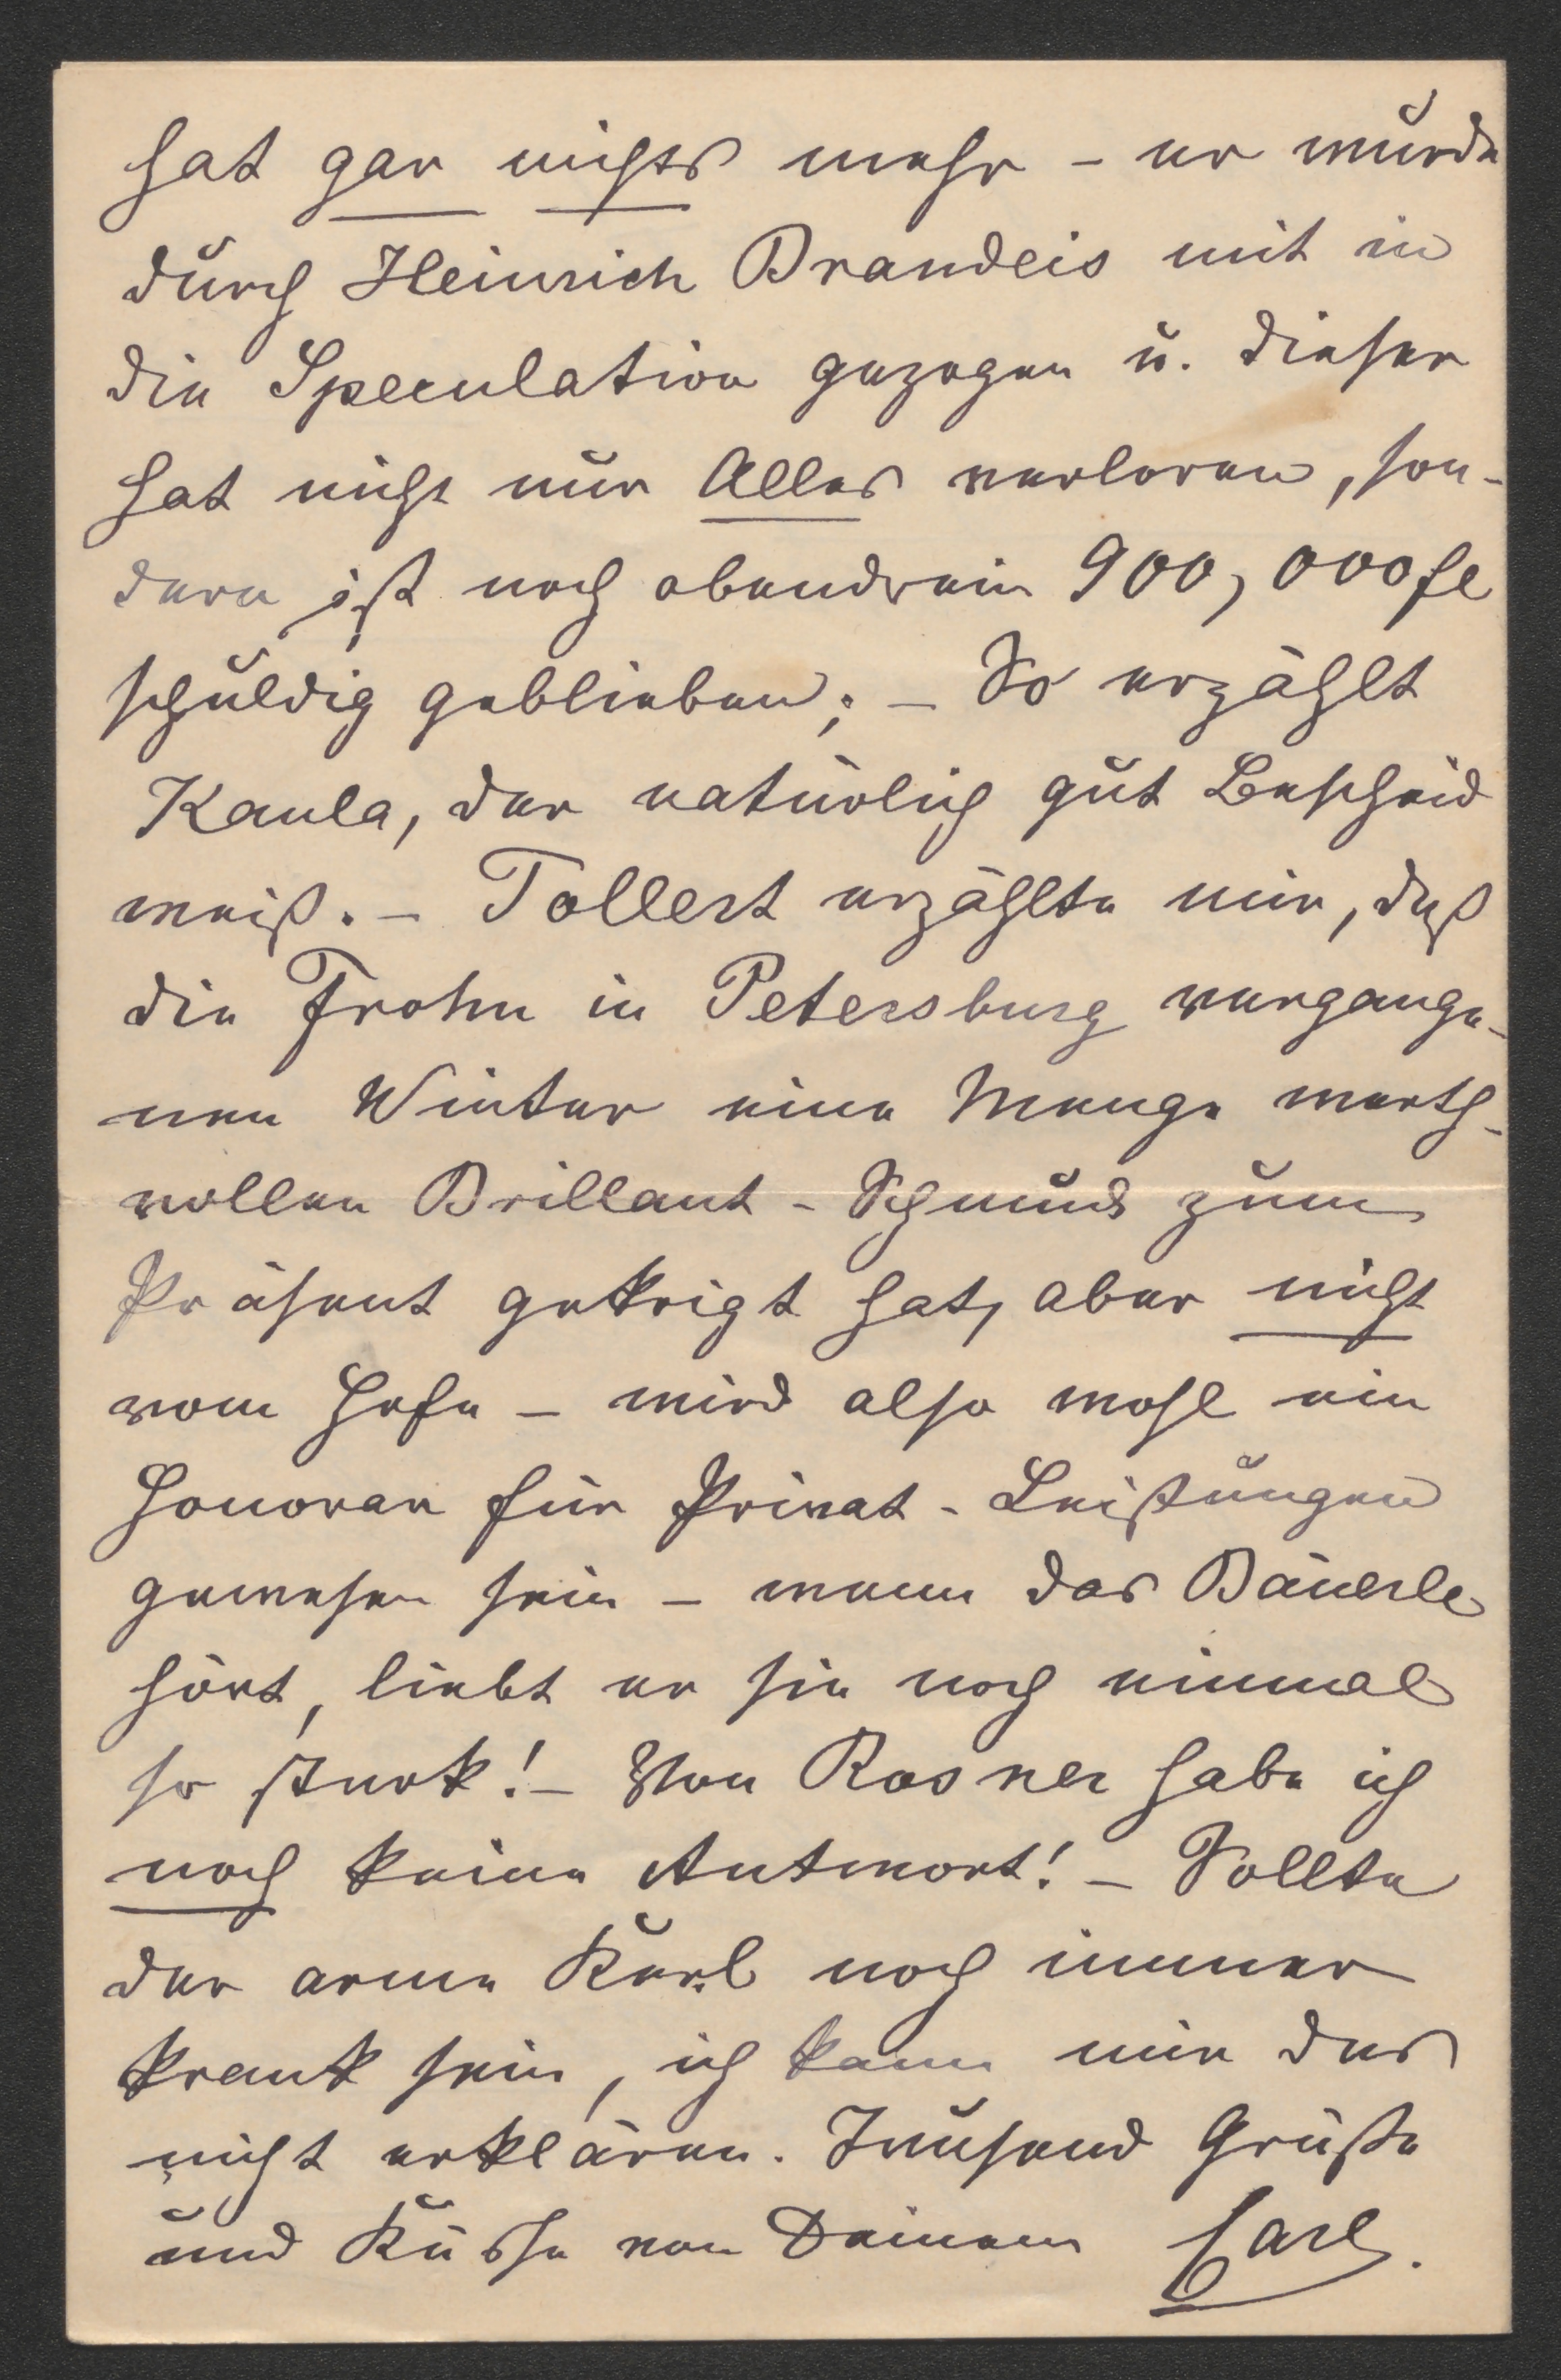 hat gar nichts mehr – er wurde
durch Heinrich Brandeis mit in
die Speculation gezogen u. dieser
hat nicht nur Alles verloren, son-
dern ist noch obendrein 900,000 fl
schuldig geblieben; – So erzählt
Kaula, der natürlich gut Bescheid
weiß. – Tollert erzählte mir, daß
die Frohn in Petersburg vergange-
nen Winter eine Menge werth-
vollen Brillant-Schmuck zum
Präsent gekrigt hat, aber nicht
vom Hofe – wird also wohl ein
Honorar für Privat-Leistungen
gewesen sein – wenn das Bäuerle
hört, liebt er sie noch einmal
so stark! – Von Rosner habe ich
noch keine Antwort! – Sollte
der arme Kerl noch immer
krank sein, ich kann mir das
nicht erklären. Tausend Grüße
und Küsse von Deinem Carl.